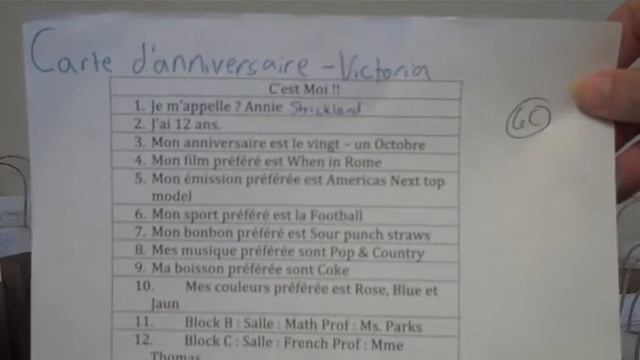 Carte d'anniversaire - Victoria
C'est Moi !!
6C
1. Je m'appelle ? Annie Strickland
2. J'ai 12 ans.
3. Mon anniversaire est le vingt – un Octobre
4. Mon film préféré est When in Rome
5. Mon émission préférée est Americas Next top
model
6. Mon sport préféré est la Football
7. Mon bonbon préféré est Sour punch straws
8. Mes musique préférée sont Pop & Country
9. Ma boisson préférée sont Coke
10. Mes couleurs préférée est Rose, Blue et
Jaun
11. Block B : Salle : Math Prof : Ms. Parks
12. Block C : Salle : French Prof : Mme
Thomas